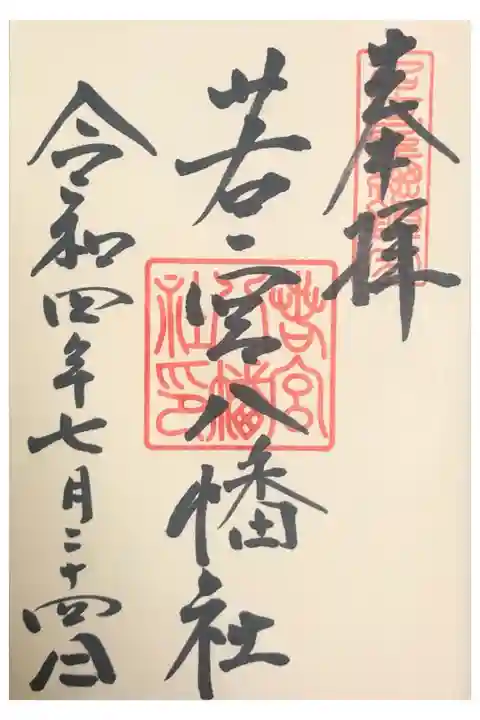 奉拝
若宮八幡社
若宮八幡社印
令和四年七月二十四日